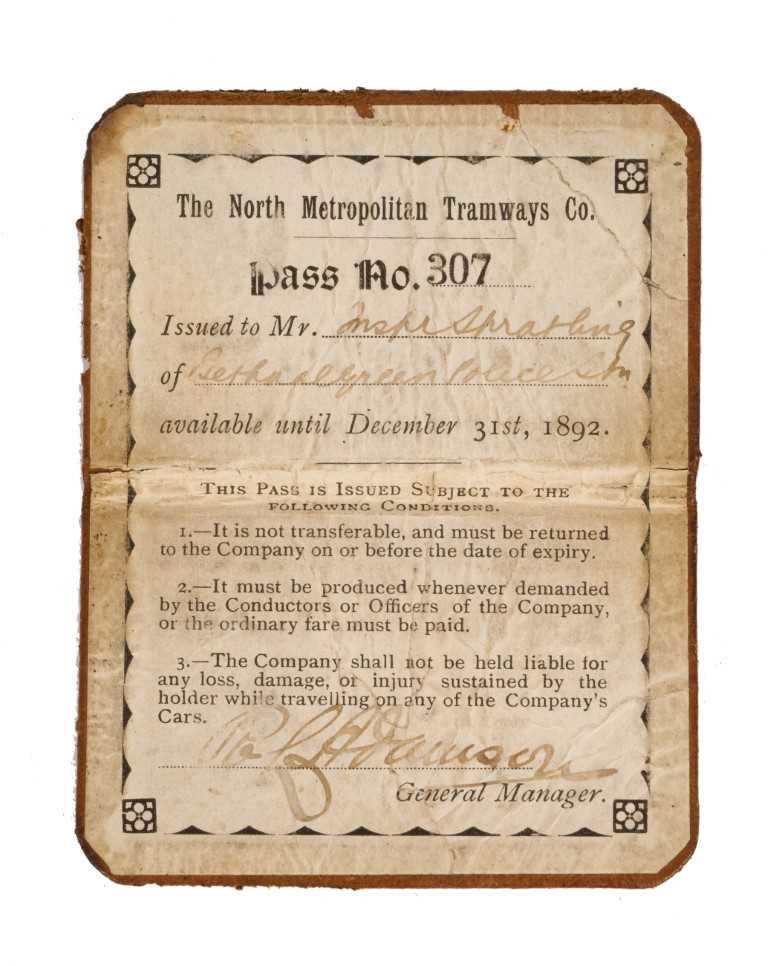 The North Metropolitan Tramways Co.
Pass No. 307
Issued to Mr. Inspr Spratling
of Bethnal Green Police Stn
available until December 31st, 1892.
THIS PASS IS ISSUED SUBJECT TO THE
FOLLOWING CONDITIONS.
1.—It is not transferable, and must be returned
to the Company on or before the date of expiry.
2.—It must be produced whenever demanded
by the Conductors or Officers of the Company,
or the ordinary fare must be paid.
3.—The Company shall not be held liable for
any loss, damage, or injury sustained by the
holder while travelling on any of the Company's
Cars.
Adamson
General Manager.